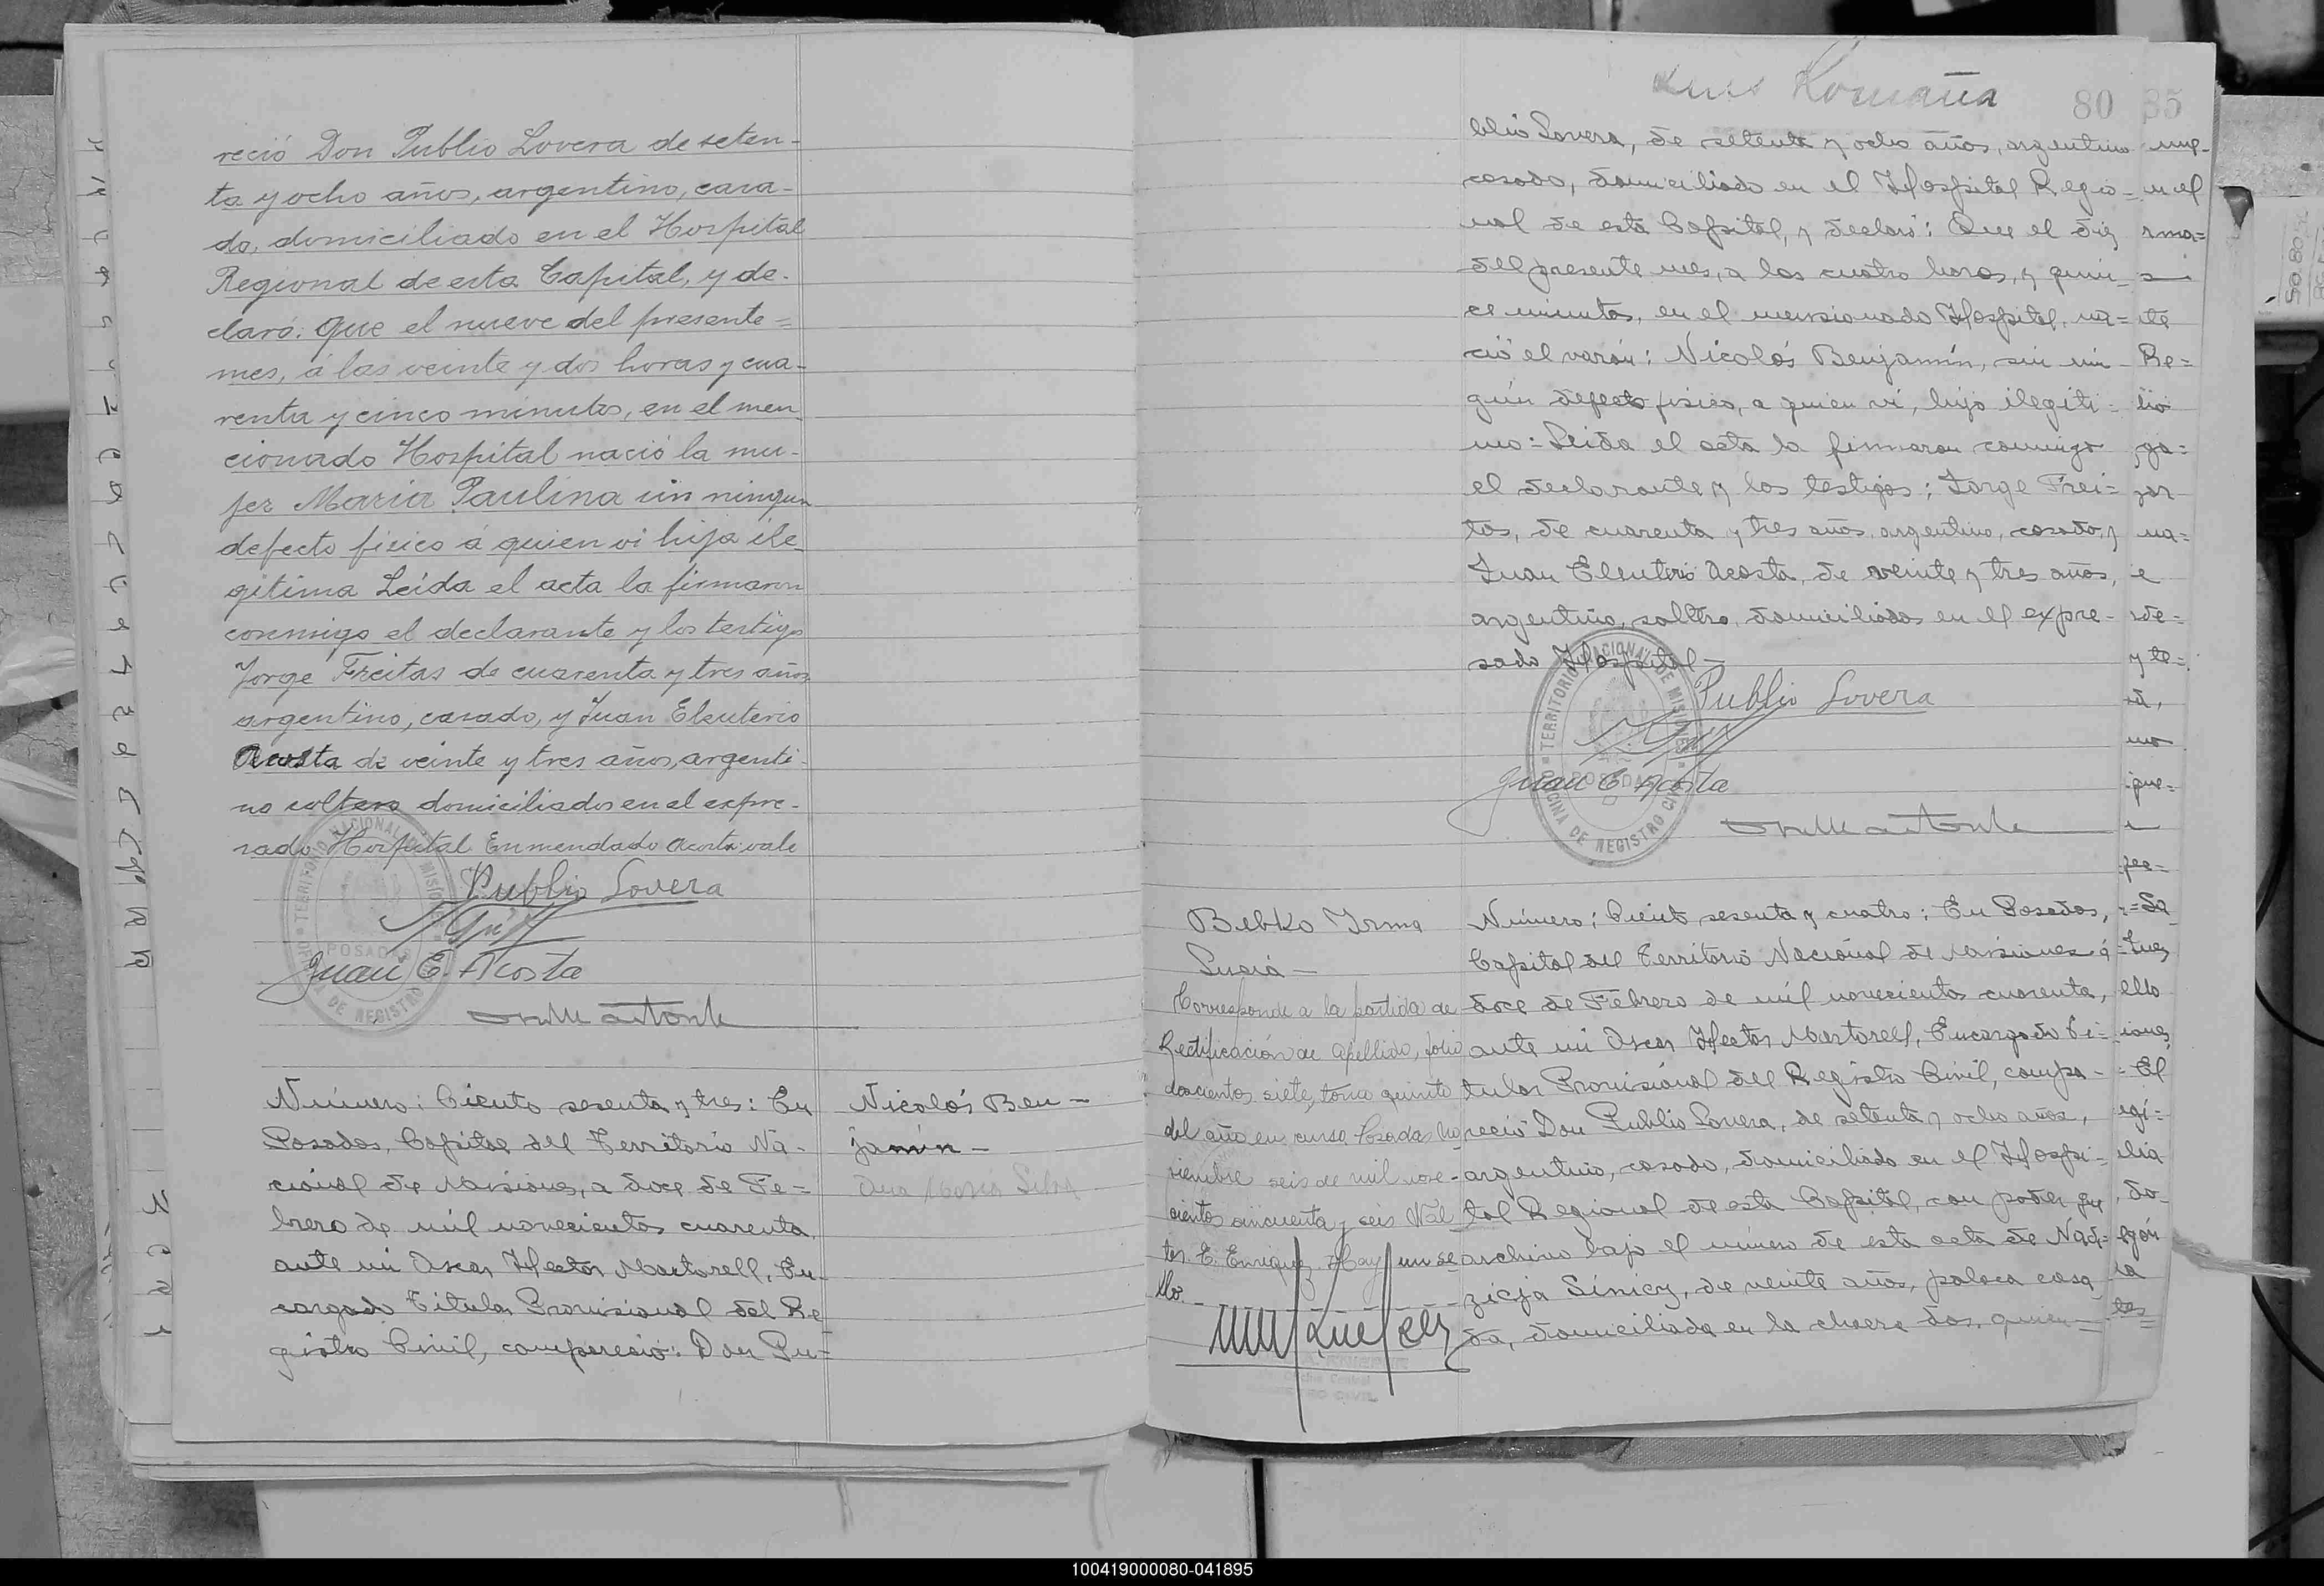 reció Don Publio Lovera de seten-
ta y ocho años, argentino, casa-
do, domiciliado en el Hospital
Regional de esta Capital, y de-
claró: que el nueve del presente=
mes, á las veinte y dos horas y cua-
renta y cinco minutos, en el men
cionado Hospital nació la mu-
jer Maria Paulina sin ningun
defecto fisico á quien vi hija ile-
gitima Leida el acta la firmaron
conmigo el declarante y los testigos
Jorge Freitas de cuarenta y tres años
argentino, casado, y Juan Eleuterio
Acosta de veinte y tres años, argenti-
no soltero domiciliados en el expre-
sado Hospital Enmendado Acosta vale
Publio Lovera
Juan E. Acosta
TERRITORIO NACIONAL DE MISIONES
POSADAS
OFICINA DE REGISTRO CIVIL
Número: Ciento sesenta y tres: En
Posadas, Capital del Territorio Na-
cional de Misiones, a doce de Fe=
brero de mil novecientos cuarenta,
ante mi Oscar Hector Martorell, En-
cargado Titular Provisional del Re
gistro Civil, compareció: Don Pu=
Nicolás Ben-
jamín-
Ana María Silva
Luis Romaña
80 35
blio Lovera, de setenta y ocho años, argentino
casado, domiciliado en el Hospital Regio=
nal de esta Capital, y declaró: Que el diez
del presente mes, a las cuatro horas, y quin-
ce minutos, en el mensionado Hospital, na=
ció el varón: Nicolás Benjamín, sin nin-
gún defecto fisico, a quien vi, hijo ilegiti=
mo:- Leida el acta la firmaron conmigo
el declarante y los testigos: Jorge Frei=
tas, de cuarenta y tres años, argentino, casado, y
Juan Eleuterio Acosta, de veinte y tres años,
argentino, soltero, domiciliados en el expre-
sado Hospital-
Publio Lovera
Juan E Acosta
TERRITORIO NACIONAL DE MISIONES
POSADAS
OFICINA DE REGISTRO CIVIL
Bebko Irma
Lucía-
Corresponde a la partida de
Rectificación de Apellido, folio
doscientos siete, tomo quinto
del año en curso. Posadas No
viembre seis de mil nove-
cientos cincuenta y seis Nés
tor E. Enriquez. Hay un se
llo.-
Número: Ciento sesenta y cuatro: En Posadas,
Capital del Territorio Nacional de Misiones á
doce de Febrero de mil novecientos cuarenta,
ante mi Oscar Hector Martorell, Encargado Ti=
tular Provisional del Registro Civil, compa-
reció Don Publio Lovera, de setenta y ocho años,
argentino, casado, domiciliado en el Hospi=
tal Regional de esta Capital, con poder que
archivo bajo el número de esta acta de Nad=
zieja Sinicz, de veinte años, polaca casa
da, domiciliada en la chacra dos, quien=
100419000080-041895